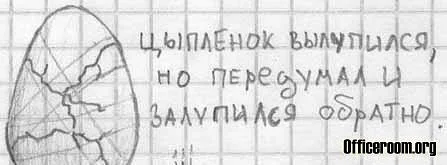 ЦЫПЛЕНОК ВЫЛУПИЛСЯ,
НО ПЕРЕДУМАЛ И
ЗАЛУПИЛСЯ ОБРАТНО.
Officeroom.org